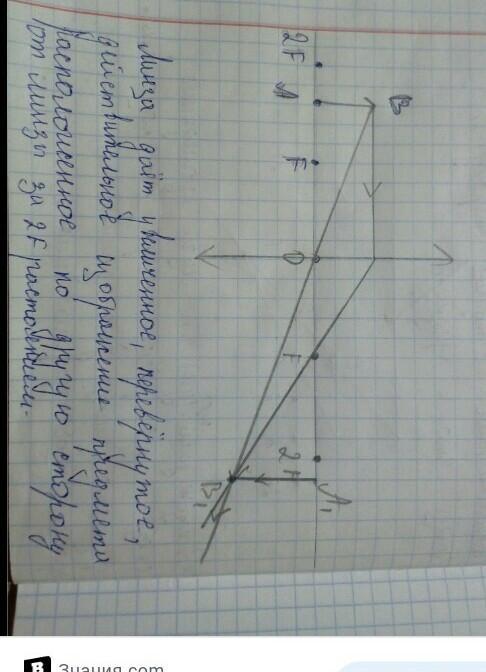 2F
A
B
F
O
F
2F
A₁
B₁
Линза даёт увеличенное, перевёрнутое,
действительное изображение предмета
расположенное по другую сторону
от линзы за 2F расстоянием.
Знания.com